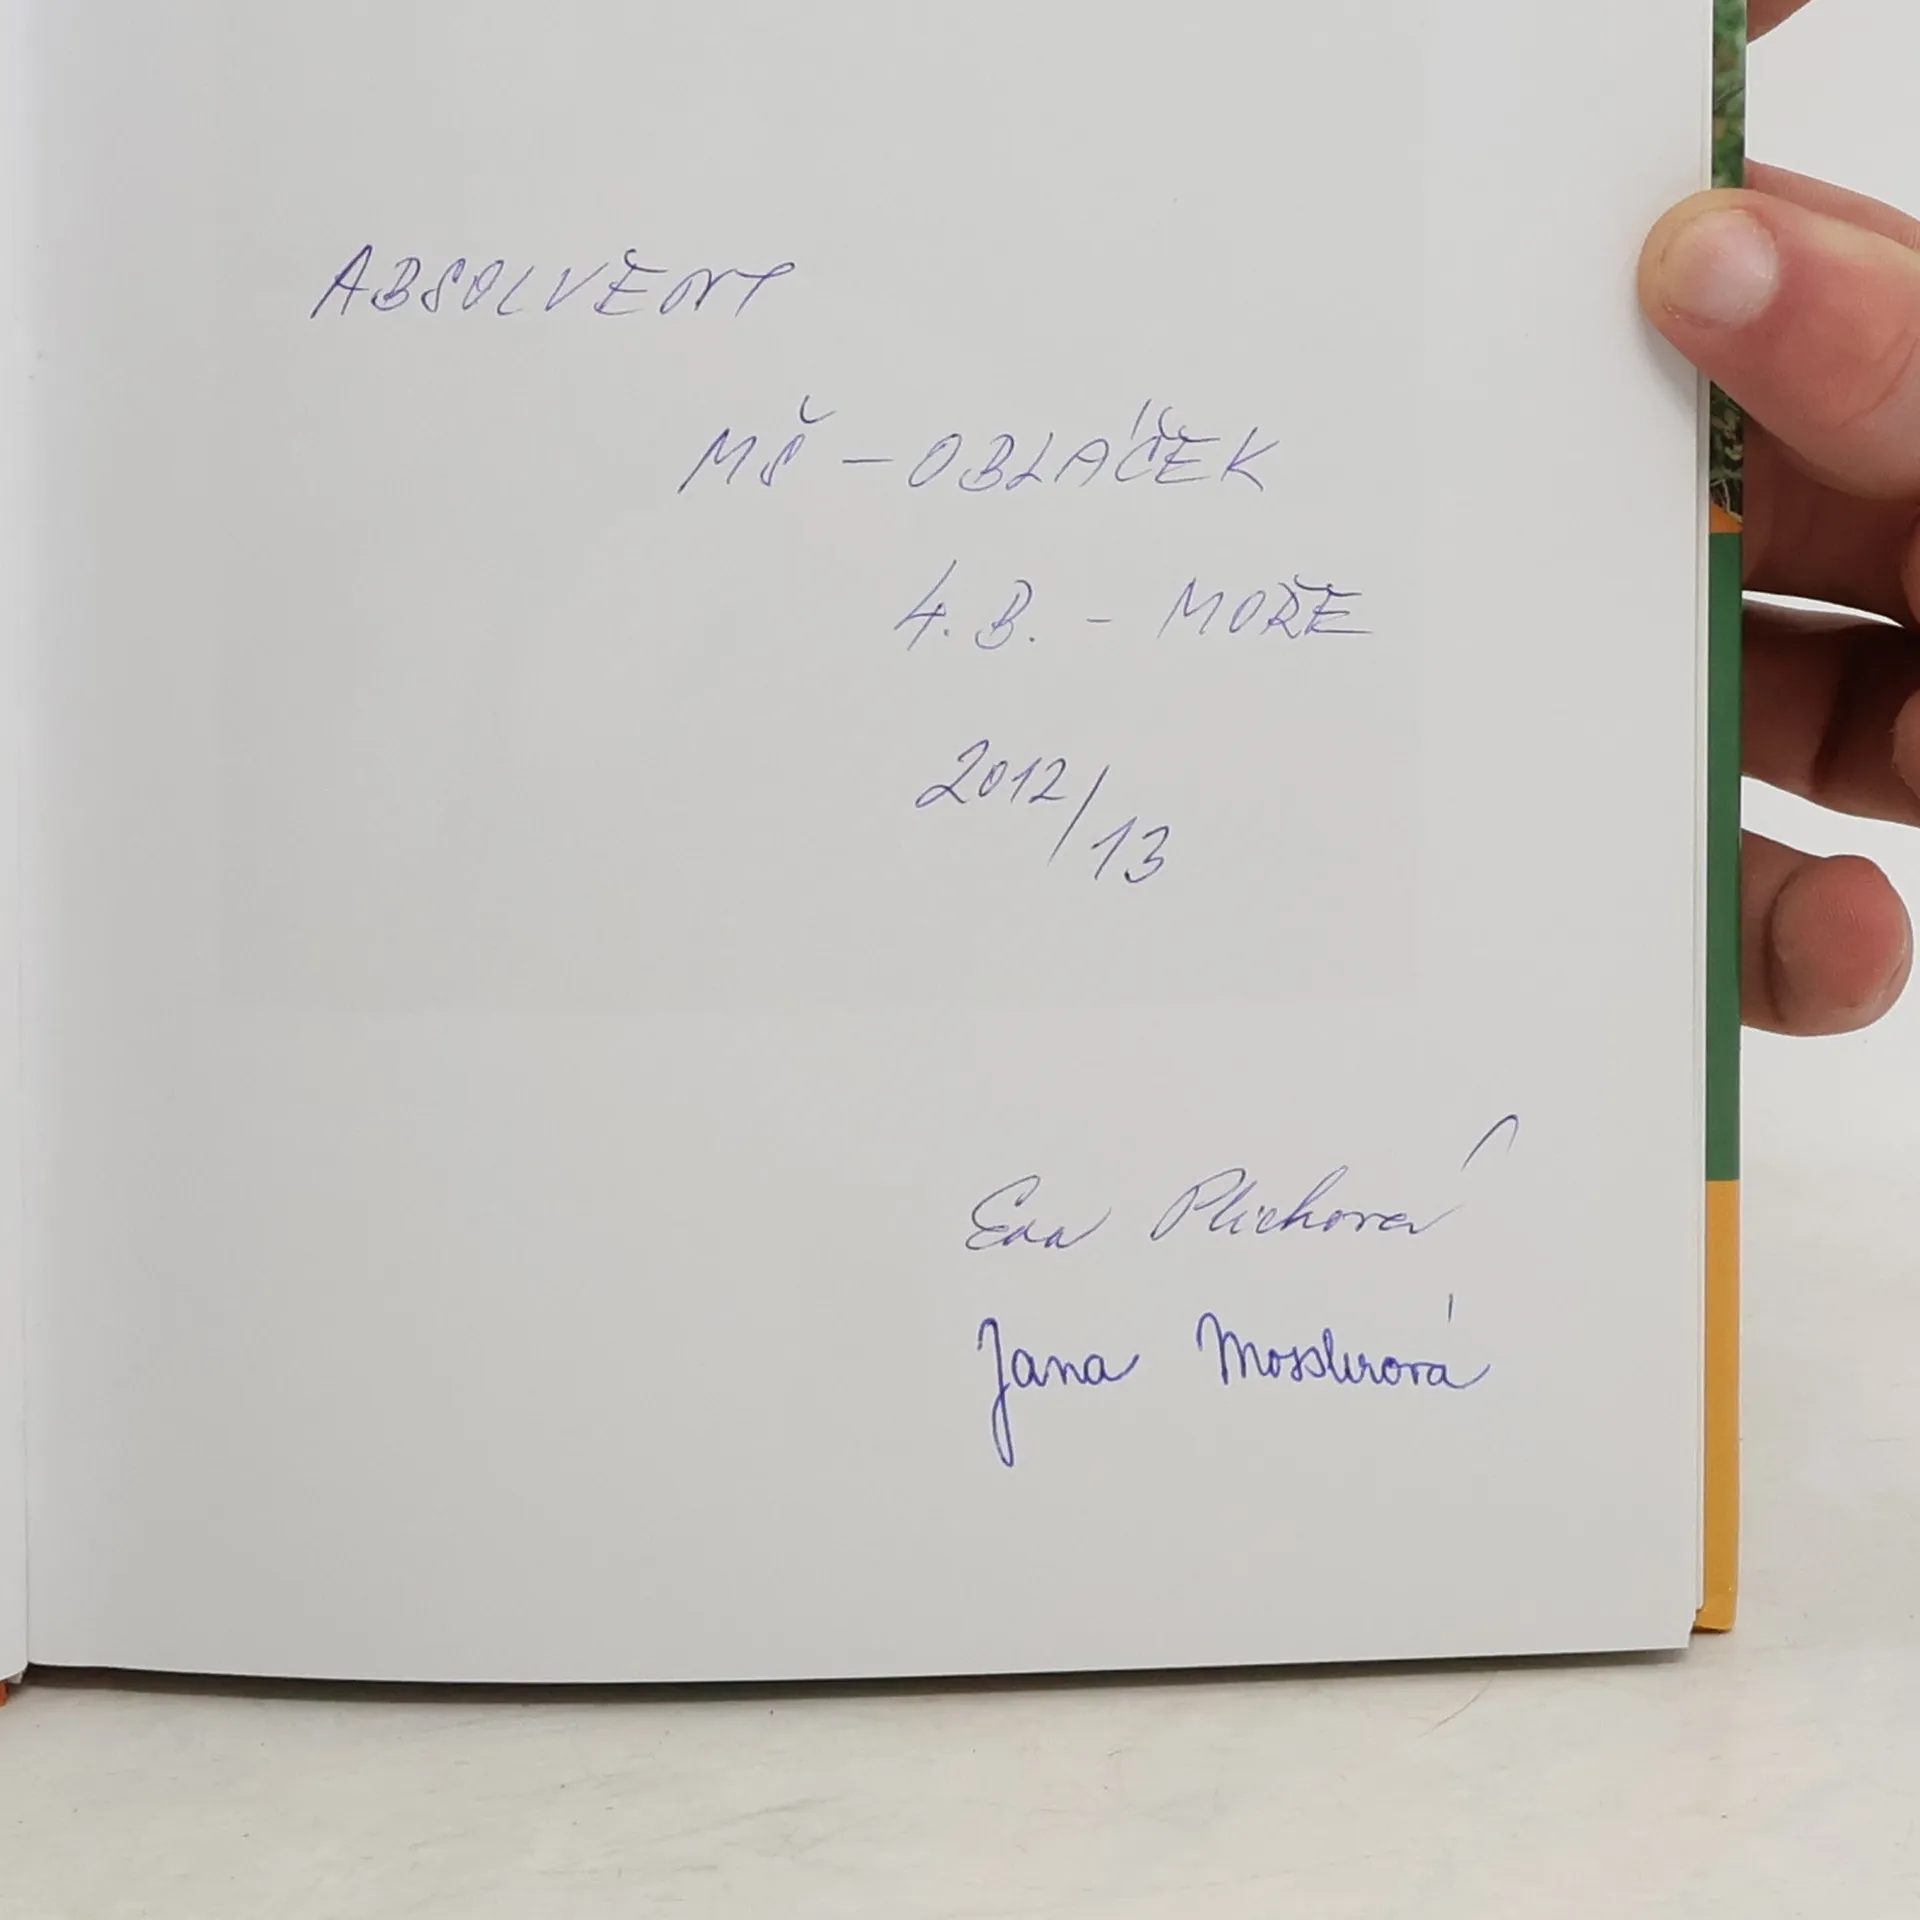 ABSOLVENT
MŠ - OBLÁČEK
4.B. - MOŘE
2012/13
Eva Plichová
Jana